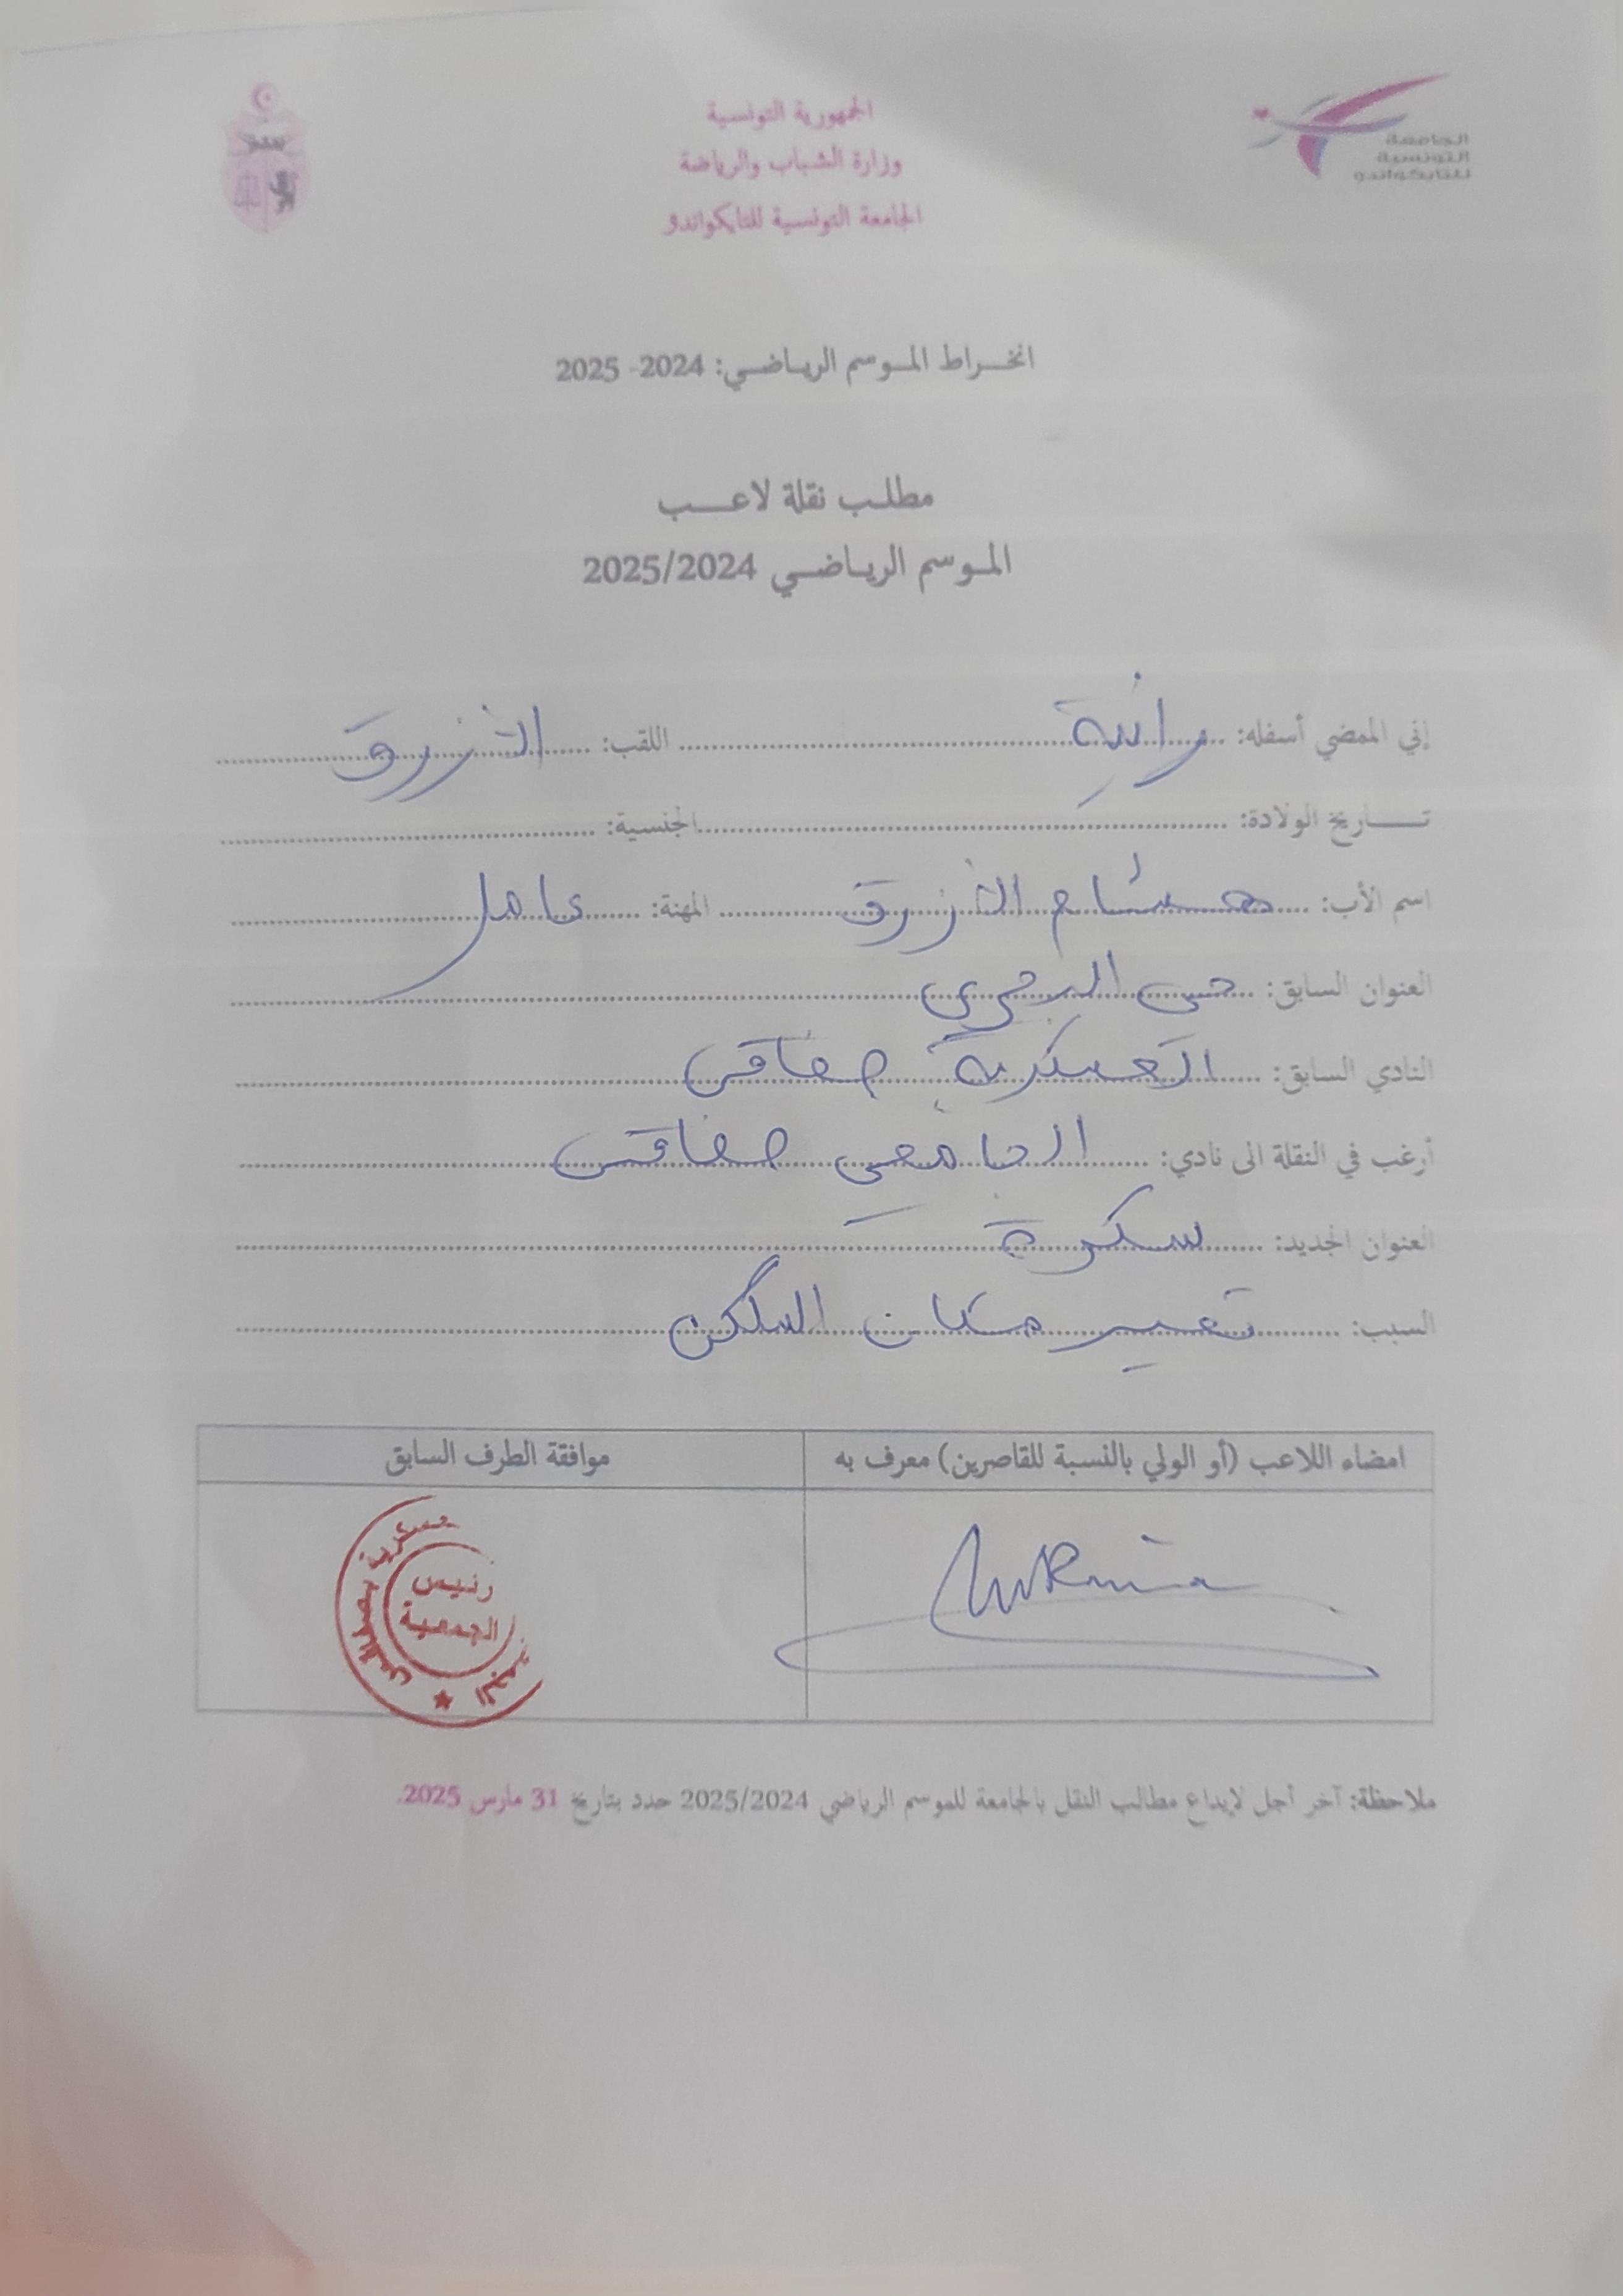 الجمهورية التونسية
وزارة الشباب والرياضة
الجامعة التونسية للتايكواندو
الجامعة
التونسية
للتايكواندو
انخراط الموسم الرياضي: 2024- 2025
مطلب نقلة لاعب
الموسم الرياضي 2025/2024
إني الممضي أسفله: رانية اللقب: الأزرق
تاريخ الولادة: الجنسية:
اسم الأب: هشام الأزرق المهنة: عامل
العنوان السابق: حي
النادي السابق: العسكرية صفاقس
أرغب في النقلة الى نادي: الجامعي صفاقس
العنوان الجديد: سكرة
السبب: تغيير مكان السكن
امضاء اللاعب (أو الولي بالنسبة للقاصرين) معرف به
موافقة الطرف السابق
عسكرية بصفاقس
رئيس
الجمعية
ملاحظة: آخر أجل لإيداع مطالب النقل بالجامعة للموسم الرياضي 2025/2024 حدد بتاريخ 31 مارس 2025.